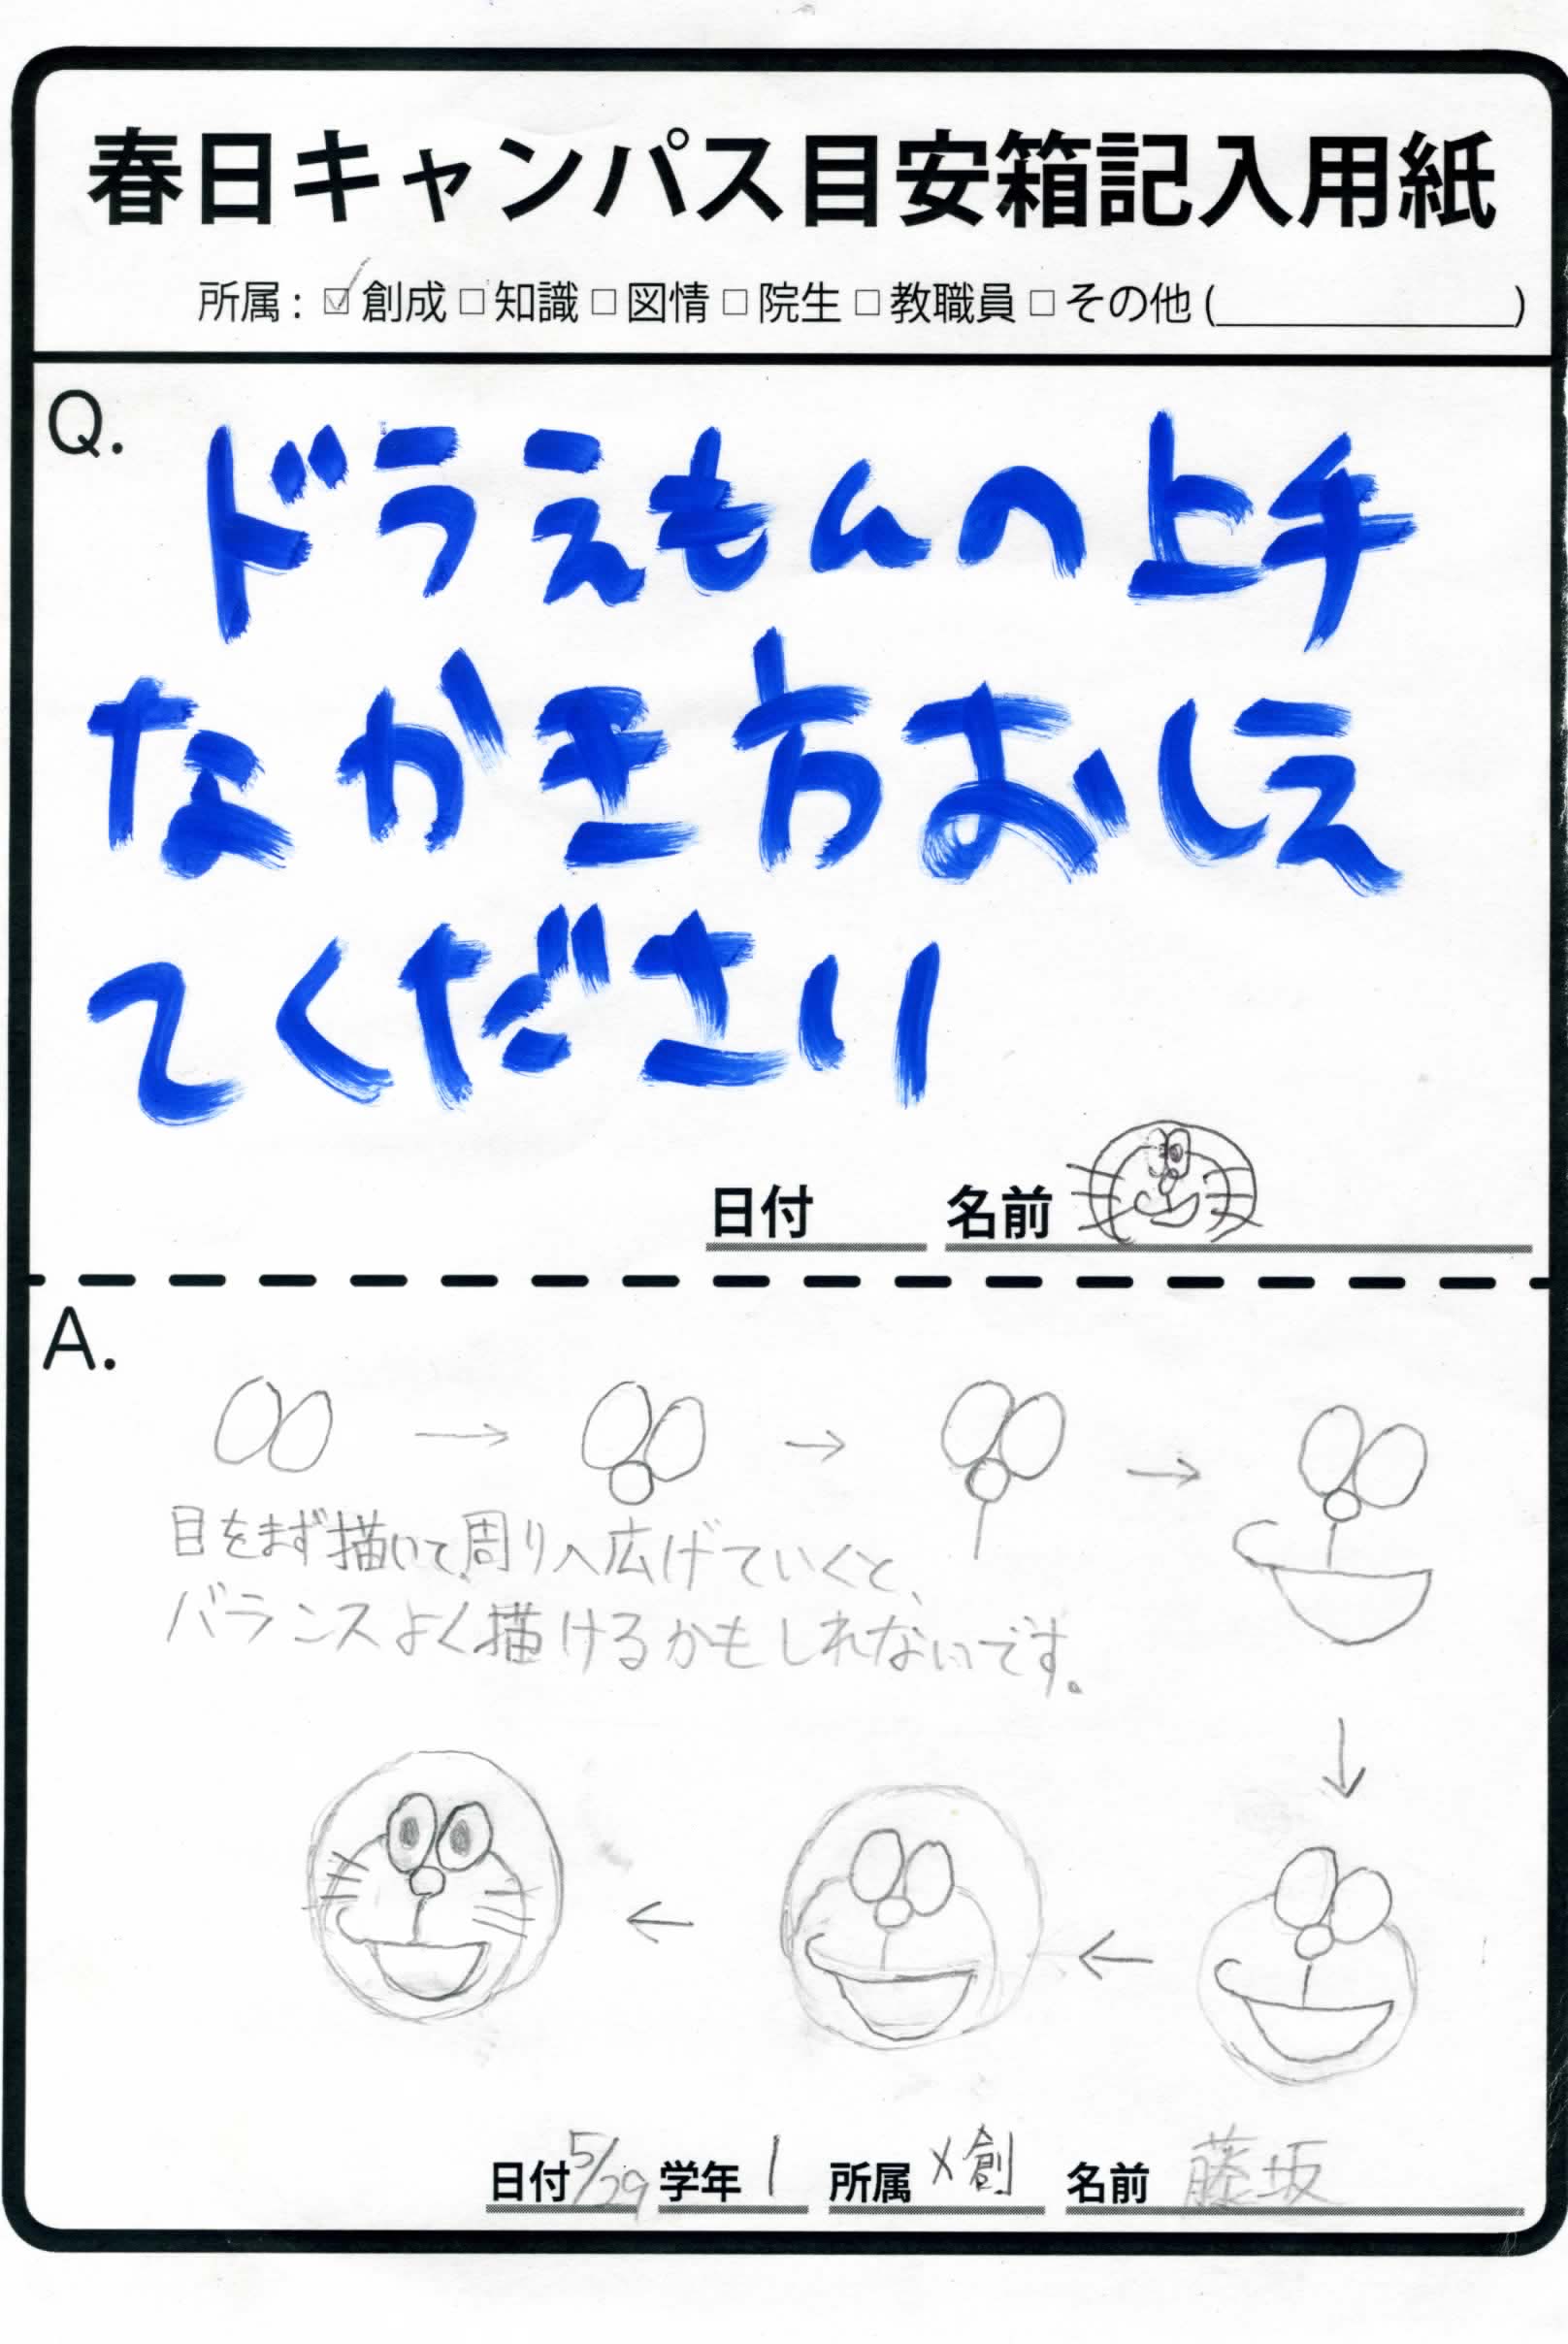 春日キャンパス目安箱記入用紙
所属：☑創成□知識□図情□院生□教職員□その他(　　　　)
Q.
ドラえもんの上手
なかき方おしえ
てください
日付　名前
A.
目をまず描いて、周りへ広げていくと、
バランスよく描けるかもしれないです。
日付 5/29 学年 1 所属 メ創 名前 藤坂